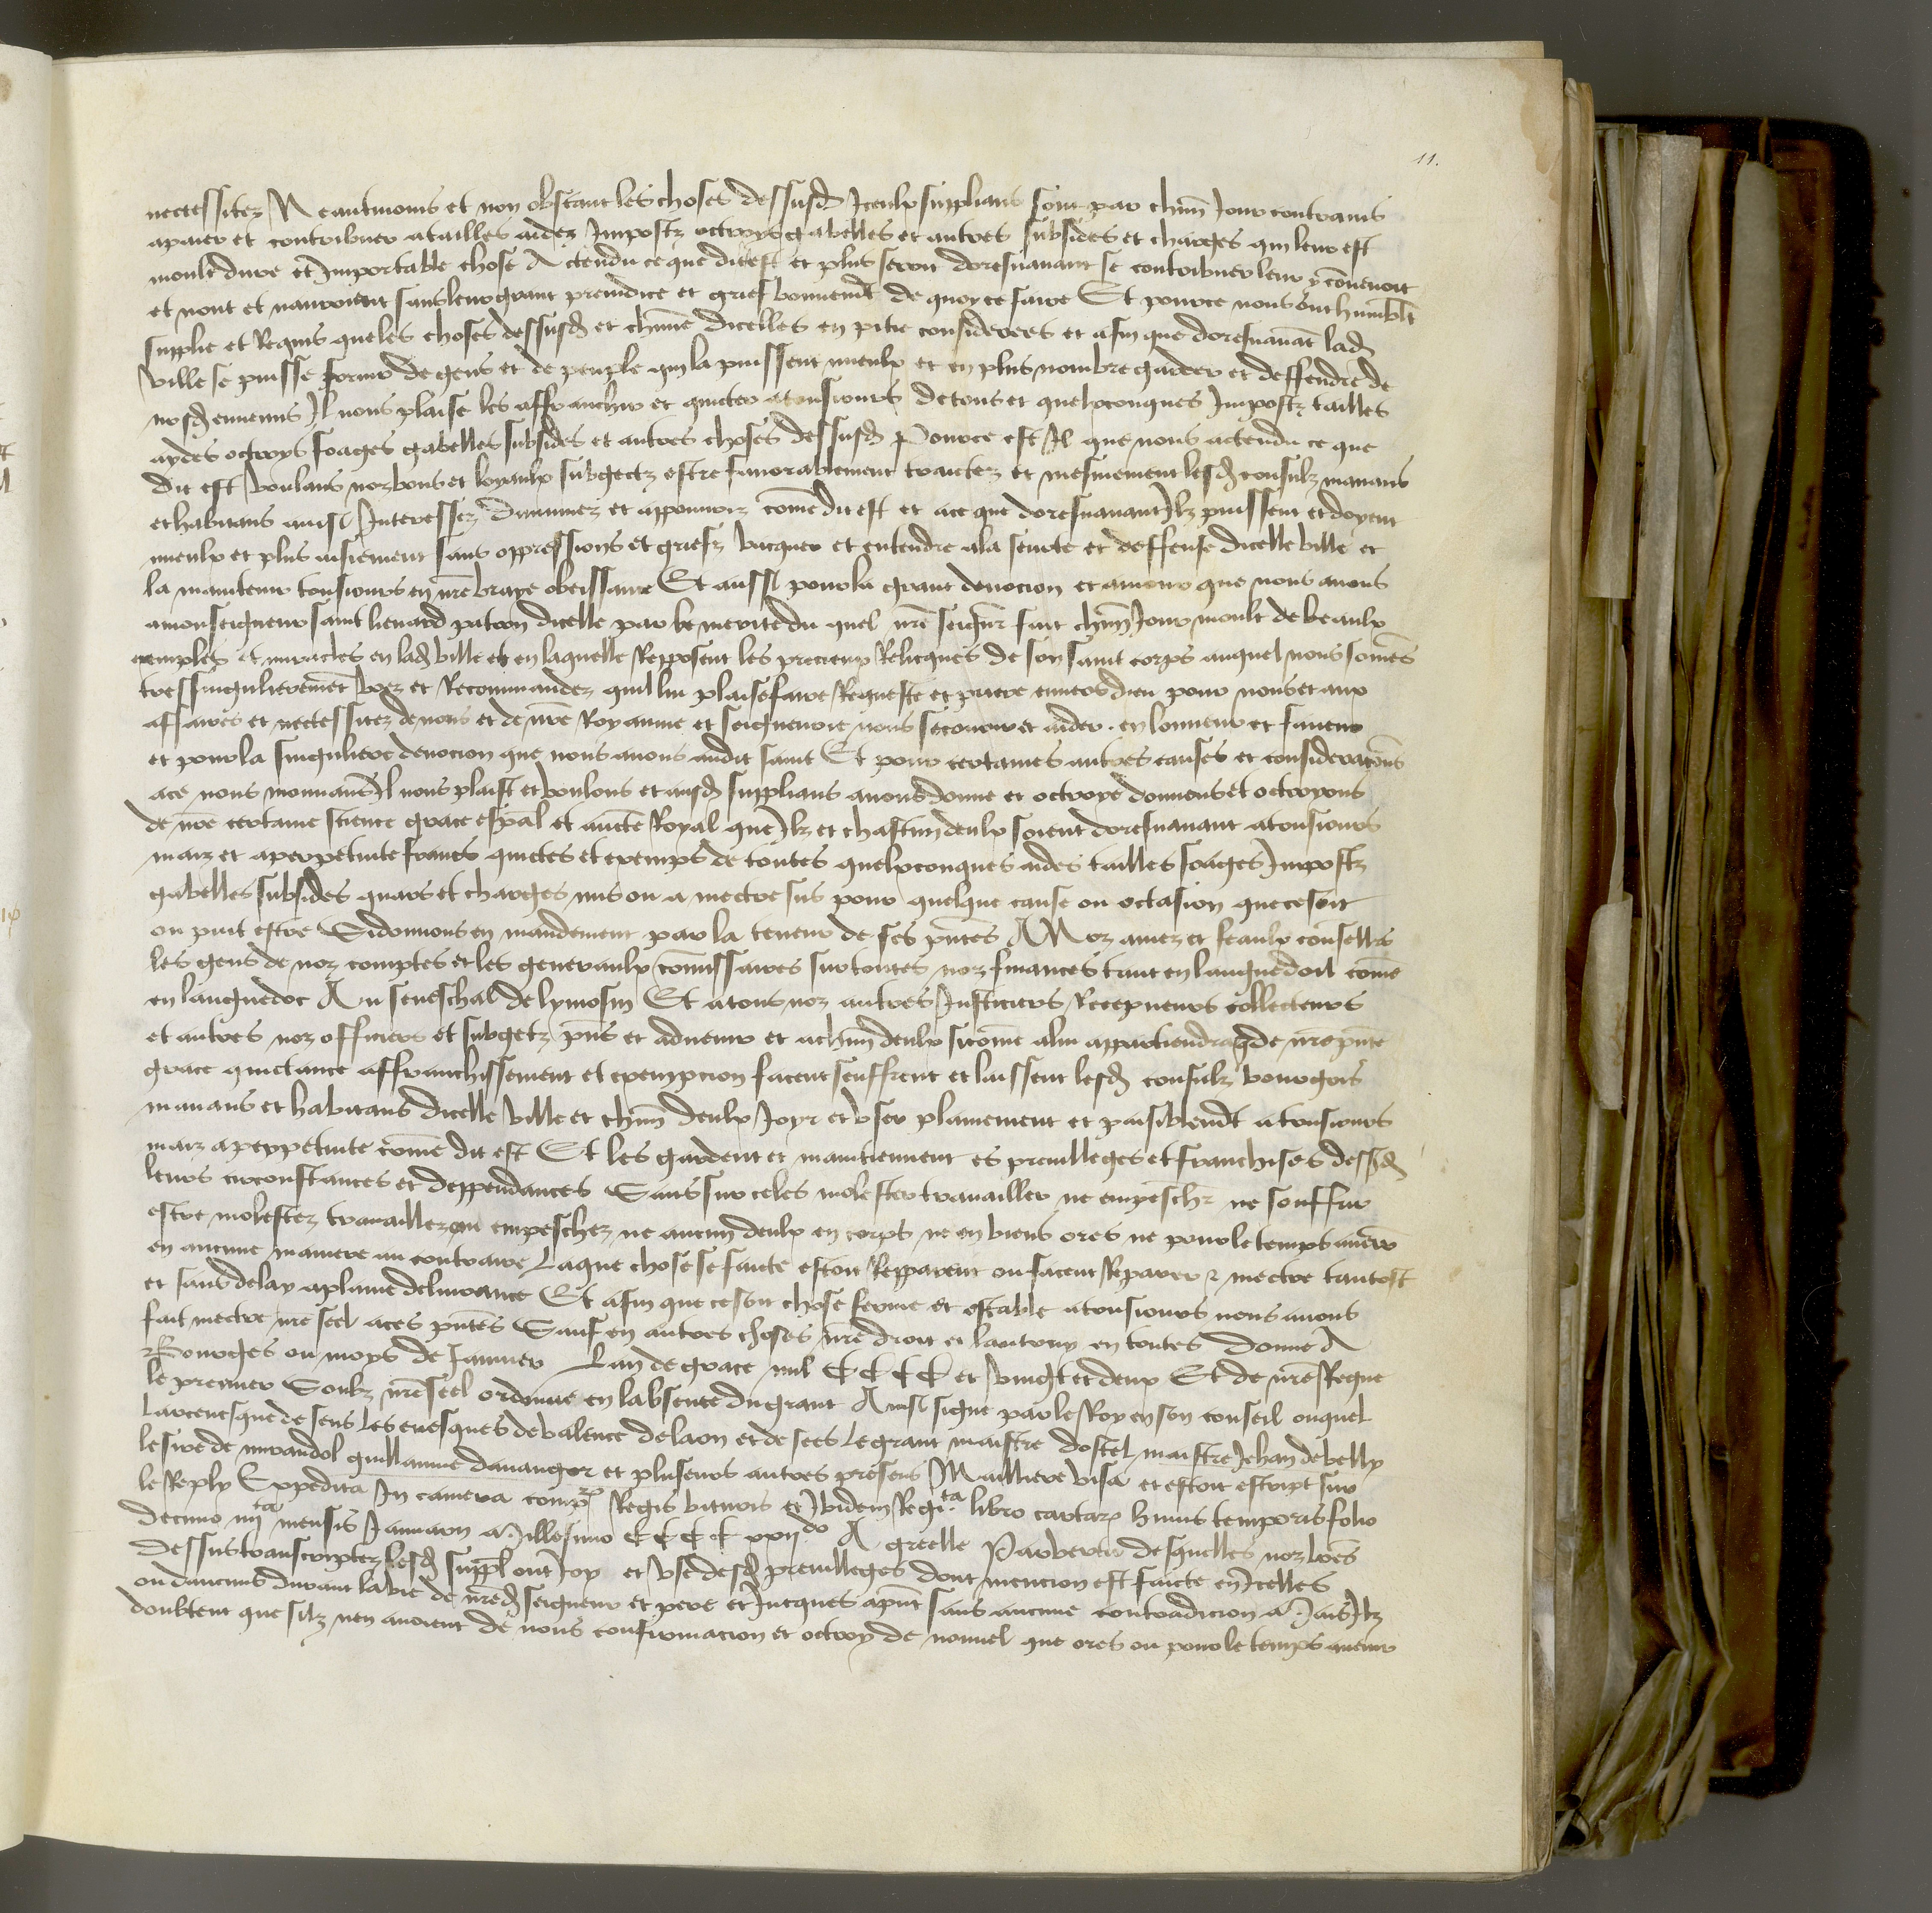 11.
necessitez Neantmoins et non obstant les choses dessusd Iceulx suplians sont par chun Jour contrains
apaier et contribuer atailles aides Impostz octroys gabelles et autres subsides et charges qui leur est
moult dure et Importable chose Actendu ce que dit est et plus seroit doresnavant se contribuer leur y convenoit
et nont et nauroient sans leur grant preiudice et grief bonnemt de quoy ce faire Et pource nous ont humblet
suplie et Requis que les choses dessusd et chune dicelles en pitie considerees et afin que doresnavat lad
ville se puisse fornir de gens et de peuple qui la puissent mieulx et en plus nombre garder et deffendre de
nosd ennemis Il nous plaise les affranchir et quicter atousiours de tous et quelxconques Impostz tailles
aydes octroys foages gabelles subsides et autres choses dessusd Pource est Il que nous actendu ce que
dit est voulans noz bons et loyaulx subgectz estre favorablement traictez et mesmement lesd consulz manans
et habitans ainsi Interessez dommaiez et appouriz come dit est et ace que doresnavant Ilz puissent et doyent
mieulx et plus aisiement sans oppressions et griefz vacquer et entendre ala seurte et deffense dicelle ville et
la maintenir tousiours en nre vraye obeissance Et aussi pour la grant devocion et amour que nous avons
amonseigneur saint lienard patron dicelle par le merite du quel nre seignr fait chun Jour moult de beaulx
exemples et miracles en lad ville et en laquelle Repposent les precieux Relicques de son saint corps auquel nous somes
tressingulieremet vouez et Recommandez quil lui plaise faire Requeste et priere envers dieu pour nous et aux
affaires et necessitez de nous et de nre Royaume et seigneurie nous secourir et aider. en lonneur et faveur
et pour la singuliere devocion que nous avons audit saint Et pour certaines autres causes et consideracions
ace nous mouvans Il nous plaist et voulons et ausd suplians avons donne et octroye donnons et octroyons
de nre certaine science grace espal et aucte Royal que Ilz et chascun deulx soient doresnavant atousiours
maiz et aperpetuite francs quictes et exemps de toutes quelxconques aides tailles foages Impostz
gabelles subsides quars et charges mis ou a mectre sus pour quelque cause ou occasion que ce soit
ou puit estre Si donnons en mandement par la teneur de ses pntes A Noz amez et feaulx conselliers
les gens de noz comptes et les generaulx comissaires sur toutes noz finances tant en languedoil come
en languedoc Au seneschal de lymosin Et atous noz autres Justiciers Recepveurs collecteurs
et autres noz officiers et subgetz pns et advenir et achun deulx sicome alui appartiendra que de nre pnte
grace quictance affranchissement et exempcion facent seuffrent et laissent lesd consulz bourgois
manans et habitans dicelle ville et chun deulx Joyr et user plainement et paisiblemt atousiours
maiz aperppetuite come dit est Et les gardent et maintiennent es previlleges et franchises dessd
leurs circonstances et deppendances Sans sur ce les molester travailler ne empeschr ne souffrir
estre molestez travaillez ou empeschez ne aucun deulx en corps ne en biens ores ne pour le temps avenir
en aucune maniere au contraire Laque chose se faicte estoit Repparent ou facent Reparer et mectre tantost
et sans delay aplaine delivrance Et afin que ce soit chose ferme et estable atousiours nous avons
fait mectre nre seel aces pntes Sauf en autres choses nre droit et lautruy en toutes Donne A
Bourges ou moys de Janvier Lan de grace mil CCCC et vingt et deux Et de nre Regne
le premier Soubz nre seel ordonne en labsence du grant Ainsi signe par le Roy en son conseil ouquel
larcevesque de sens les evesques de valence de laon et de sees Le grant maistre dostel maistre Jehan de velly
le sire de mirandol guillaume davaugor et pluseurs autres presens Malliere visa et estoit escript sur
le Reply Expedita In camera compor Regis bituris et Ibidem Regta libro cartar huius temporis folio
decimo IIIIta mensis Januarii Millesimo CCCC xxiido A greelle Par vertu desquelles noz lres
dessus transcriptez lesd suppl ont Joy et use desd previlleges dont mencion est faicte en Icelles
ou daucuns durant la vie de nred seigneur et pere et Jucques apnt sans aucune contradicion Mais Ilz
doubtent que silz nen avoient de nous confirmacion et octroy de nouvel que ores ou pour le temps avenir